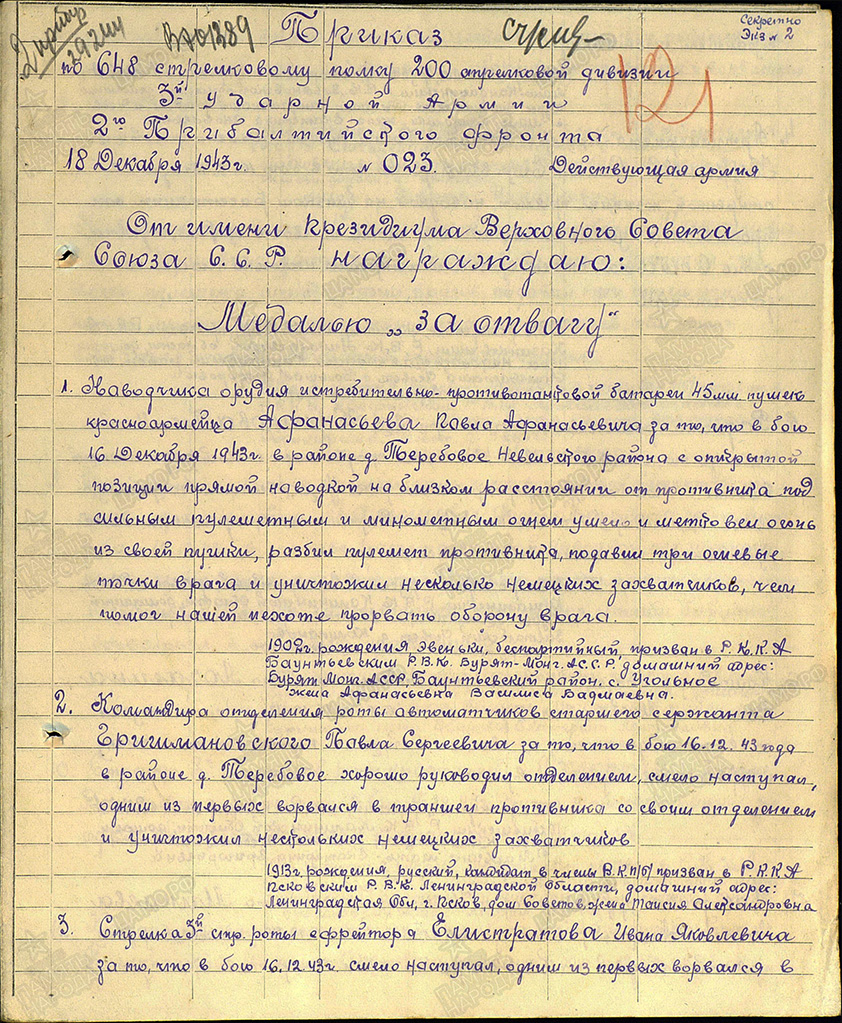 Приказ
Секретно
Экз № 2
по 648 стрелковому полку 200 стрелковой дивизии
3й Ударной Армии
121
2го Прибалтийского фронта
18 Декабря 1943г. № 023. Действующая армия
От имени Президиума Верховного Совета
Союза С.С.Р. награждаю:
Медалью „за отвагу“
1. Наводчика орудия истребительно-противотанковой батареи 45мм пушек
красноармейца Афанасьева Павла Афанасьевича за то, что в бою
16 Декабря 1943г. в районе д. Теребовое Невельского района с открытой
позиции прямой наводкой на близком расстоянии от противника под
сильным пулеметным и минометным огнем умело и метко вел огонь
из своей пушки, разбил пулемет противника, подавил три огневые
точки врага и уничтожил несколько немецких захватчиков, чем
помог нашей пехоте прорвать оборону врага.
рождения эвеньки, беспартийный, призван в Р.К.К.А
Баунтьевским Р.В.К. Бурят-Монг. А.С.С.Р. домашний адрес:
Бурят Монг. АССР, Баунтьевский район, с. Угольное
жена Афанасьевна Василиса Бадмаевна.
2. Командира отделения роты автоматчиков старшего сержанта
Павла Сергеевича за то, что в бою 16.12.43 года
в районе д. Теребовое хорошо руководил отделением, смело наступал,
одним из первых ворвался в траншеи противника со своим отделением
и уничтожил нескольких немецких захватчиков
1913г. рождения, русский, кандидат в члены В.К.П/б/ призван в Р.К.К.А
Псковским Р.В.К. Ленинградской Области, домашний адрес:
Ленинградская Обл, г. Псков, дом Советов. жена Таисия Александровна
3. Стрелка 3й стр. роты ефрейтора Елистратова Ивана Яковлевича
за то, что в бою 16.12.43г. смело наступал, одним из первых ворвался в